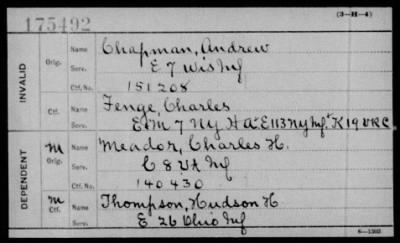 175492
(3-H-4)
INVALID
Orig.
Name Chapman, Andrew
Serv. E 7 Wis Inf
Ctf. No. 151208
Ctf.
Name Fenge, Charles
Serv. E & M 7 Ny H A & E 113 Ny Inf & K 19 V.R.C.
DEPENDENT
m
Orig.
Name Meador, Charles H.
Serv. C 8 Va Inf
Ctf. No. 140430
m
Ctf.
Name Thompson, Hudson H
Serv. E 26 Ohio Inf